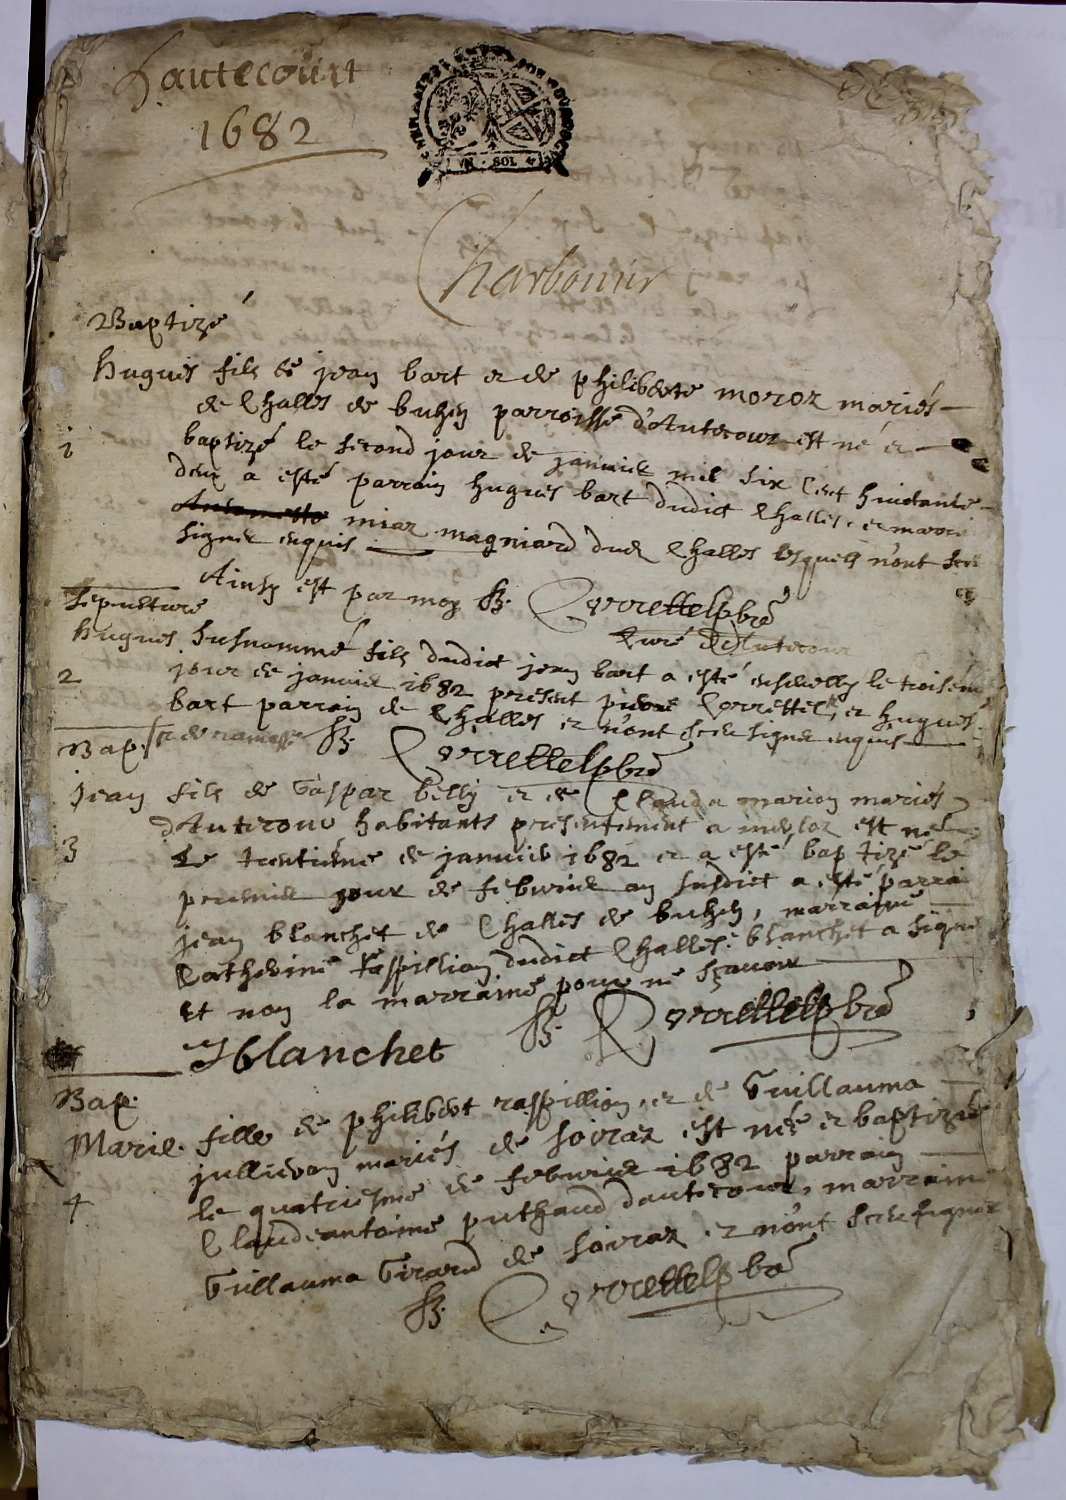 hautecourt
1682
VN · SOL
Charbonnier
Baptizé
hugues fils de jean bart et de philiberte moroz mariés
de Challes de buhen parroisse d'Autecour est né et
1 baptizé le second jour de janvier mil six cent huictante
deux a esté parrain hugues bart dudict Challes et marrai
Antoinette miaz magniard dud Challes lesquels n'ont sceu
signer enquis
Ainsy est par moy Cerrettes pbre
Curé d'Autecour
Sepulture
hugues susnommé fils dudict jean bart a esté ensevelly le troisiem
2 jour de janvier 1682 present pierre Cerrettes et hugues
bart parrain de Challes et n'ont sceu signer enquis
et de ramasse Cerrettes pbre
Bap.
jean fils de Gaspar belly et de Clauda marion mariés
d'Autecour habitants presentement a est né
3 Le trentiéme de janvier 1682 et a esté baptizé le
premier jour de febvrier an susdict a esté parrai
jean blanchet de Challes de buhen, marraine
Catherine raspillion dudict Challes. blanchet a signé
et non la marraine pour ne sçavoir
Cerrettes pbre
J blanchet
Bap.
Marie. fille de philibert raspillion, et de Guillauma
jullieron mariés de soiraz est née et baptizée
4 le quatriesme de febvrier 1682 parrain
Claudeantoine puthaud dautecour, marraine
Guillauma Girard de soiraz et n'ont sceu signer
Cerrettes pbre